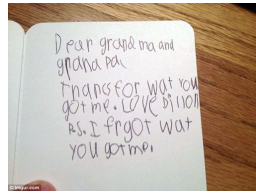 Dear grandma and
grandpa
Thancs for wat you
got me. Love Dillon
P.S. I frgot wat
you got me.
© imgur.com